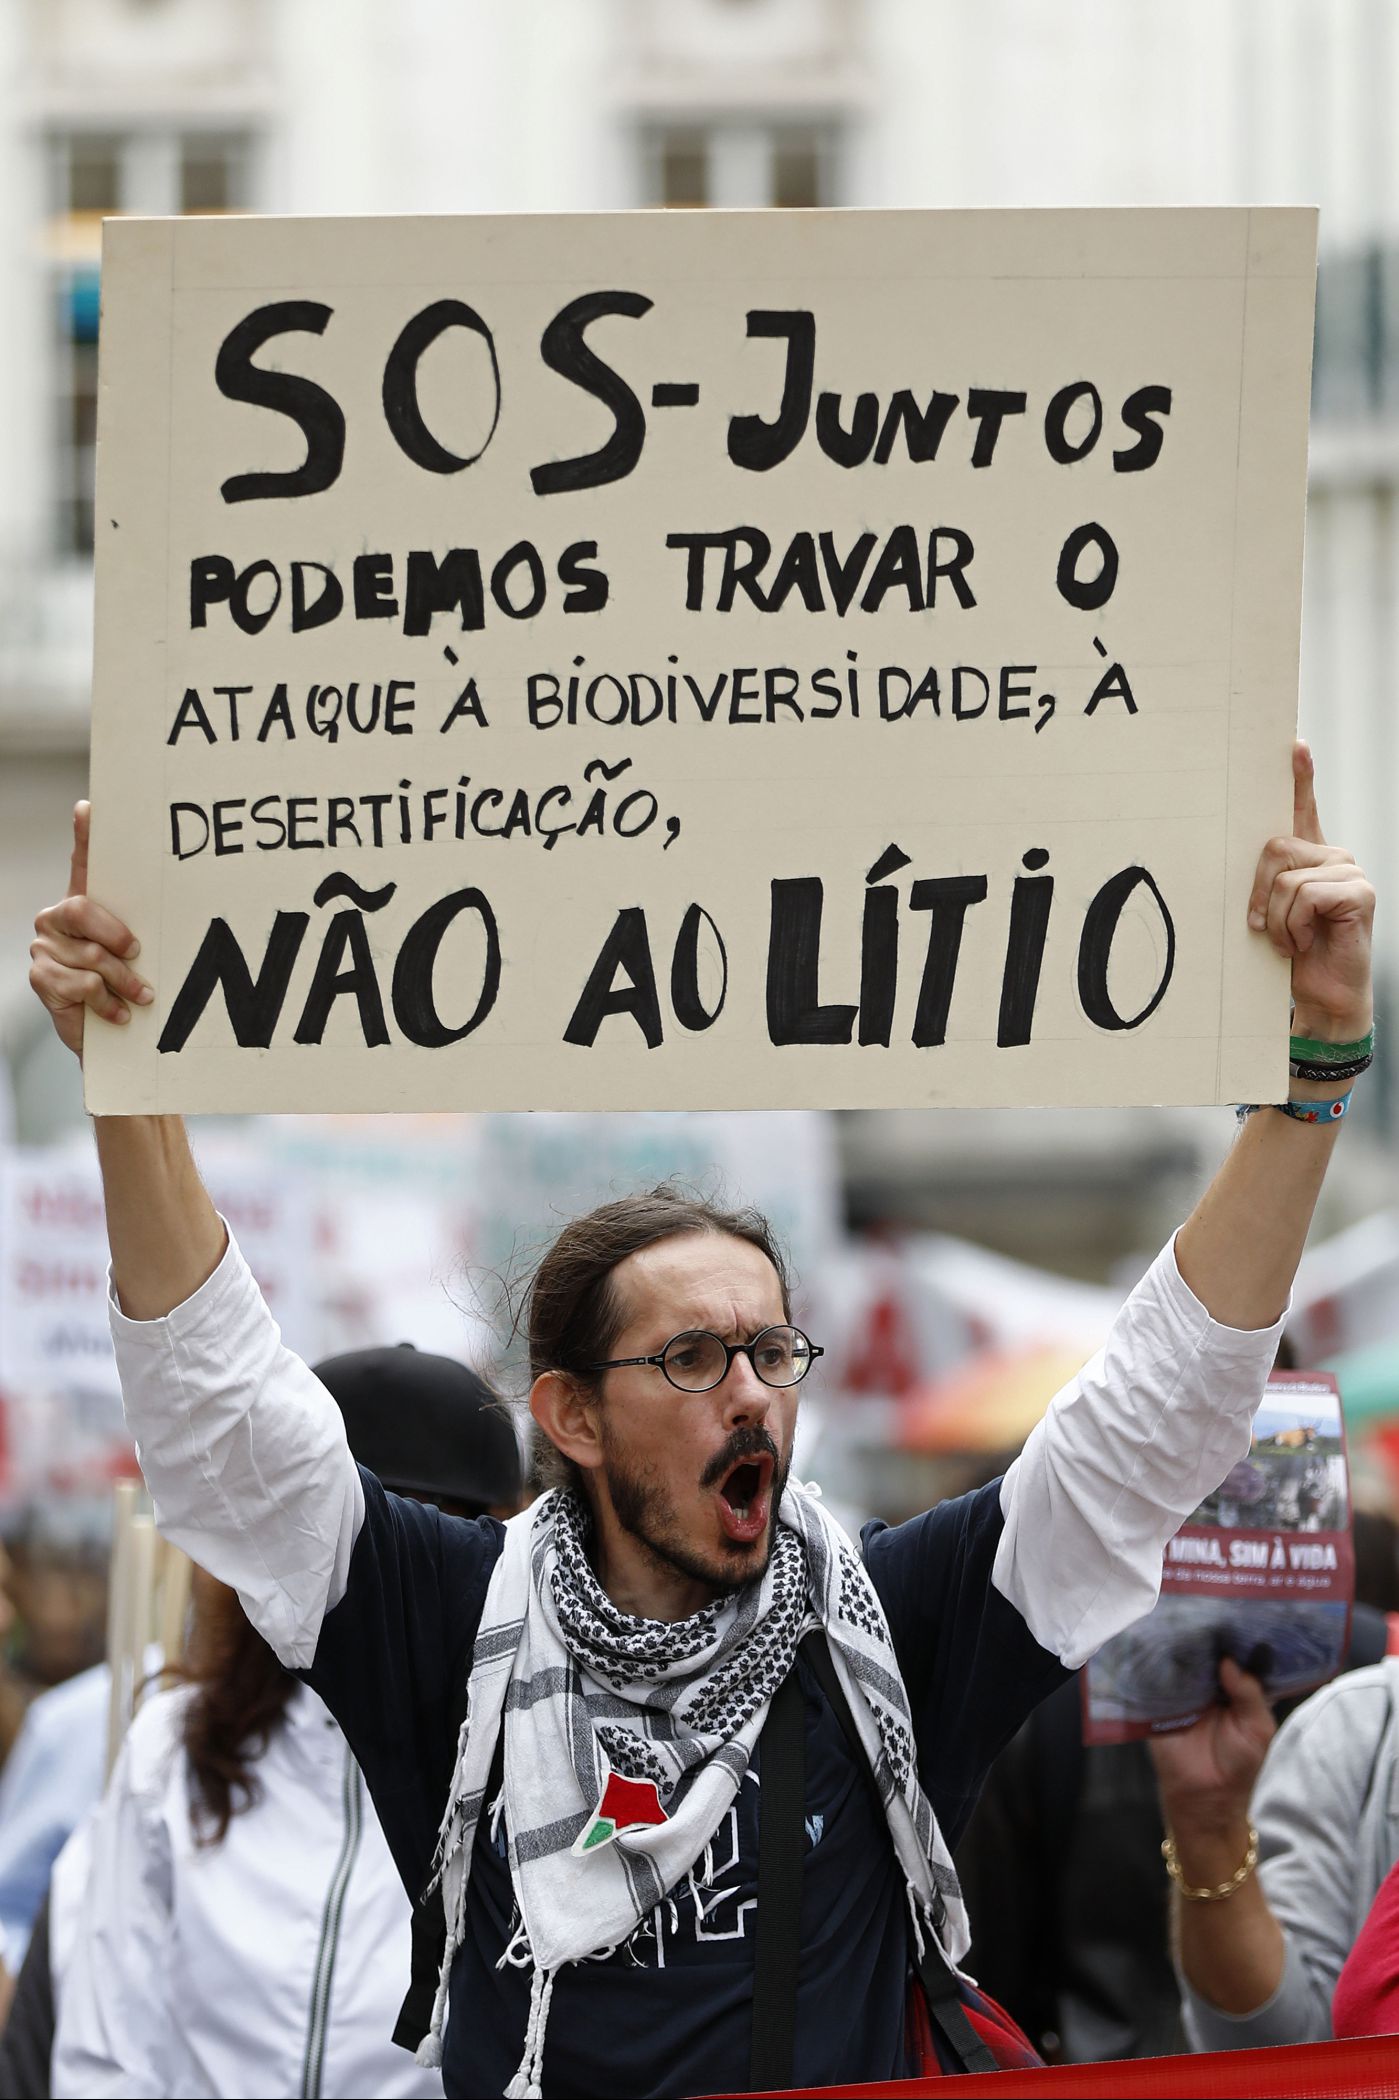 SOS-JUNTOS
PODEMOS TRAVAR O
ATAQUE À BIODIVERSIDADE, À
DESERTIFICAÇÃO,
NÃO AO LÍTIO
MINA, SIM À VIDA
da nossa terra, ar e água